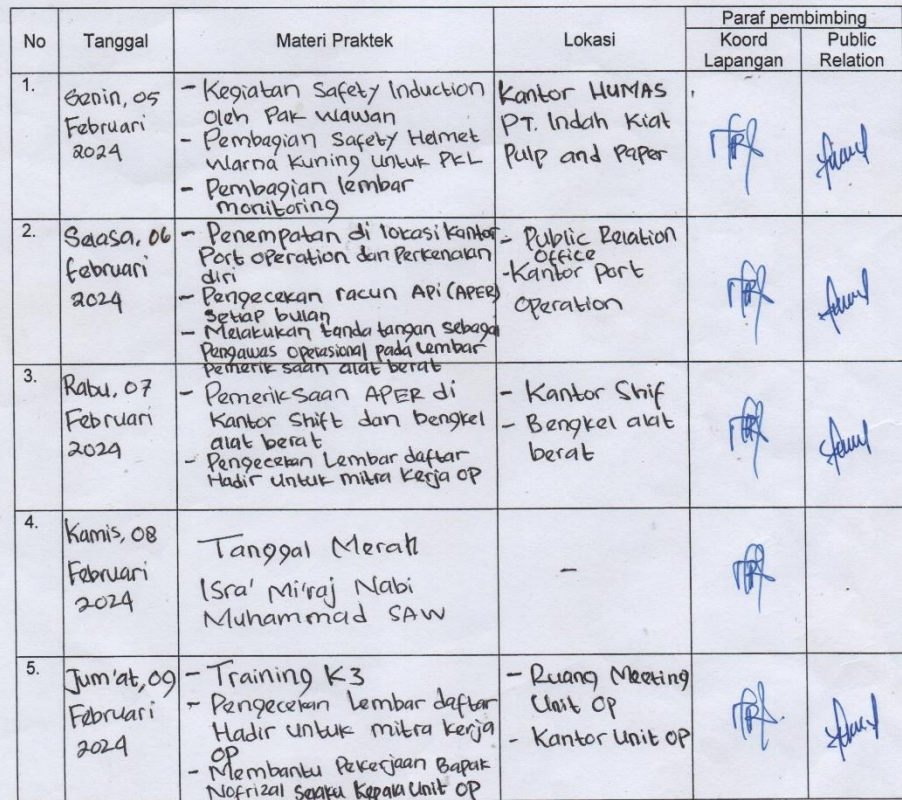 No Tanggal Materi Praktek Lokasi Paraf pembimbing
Koord Lapangan Public Relation
1.
Senin, 05
Februari
2024
- Kegiatan Safety Induction
oleh Pak Wawan
- Pembagian Safety Helmet
Warna Kuning Untuk PKL
- Pembagian lembar
monitoring
Kantor HUMAS
PT. Indah Kiat
Pulp and Paper
2.
Selasa, 06
februari
2024
- Penempatan di lokasi Kantor
Port operation dan Perkenalan
diri
- Pengecekan racun Api (APER)
Setiap bulan
- Melakukan tanda tangan sebagai
Pengawas Operasional pada Lembar
Pemeriksaan alat berat
- Public Relation
Office
- Kantor Port
Operation
3.
Rabu, 07
Februari
2024
- Pemeriksaan APER di
Kantor Shift dan bengkel
alat berat
- Pengecekan Lembar daftar
Hadir Untuk mitra Kerja OP
- Kantor Shif
- Bengkel alat
berat
4.
Kamis, 08
Februari
2024
Tanggal Merah
Isra' Mi'raj Nabi
Muhammad SAW
-
5.
Jum'at, 09
Februari
2024
- Training K3
- Pengecekan Lembar daftar
Hadir Untuk mitra Kerja
OP
- Membantu Pekerjaan Bapak
Nofrizal Selaku Kepala Unit OP
- Ruang Meeting
Unit OP
- Kantor Unit OP